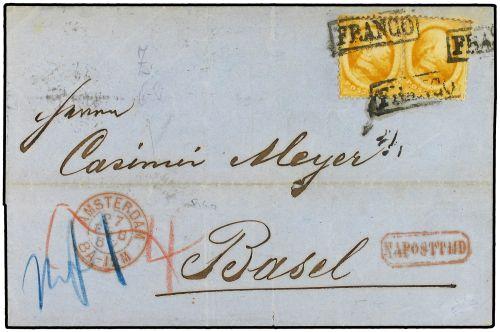 FRANCO
FRANCO
Herrn
Casimir Meyer
AMSTERDAM
4
Basel
NAPOSTTIJD